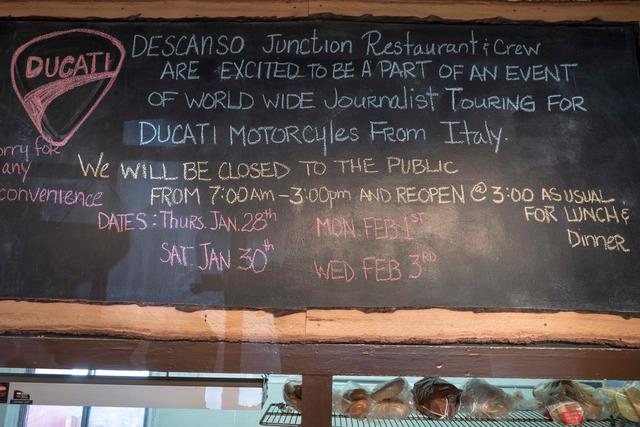 DUCATI
DESCANSO Junction Restaurant & Crew
ARE EXCITED TO BE A PART OF AN EVENT
OF WORLD WIDE Journalist Touring FOR
DUCATI MOTORCYLES From Italy.
orry for
any
convenience
WE WILL BE CLOSED TO THE PUBLIC
FROM 7:00am - 3:00pm AND REOPEN @ 3:00 AS USUAL
FOR LUNCH &
Dinner
DATES: Thurs. JAN. 28th
MON. FEB 1ST
SAT. JAN 30th
WED. FEB 3RD